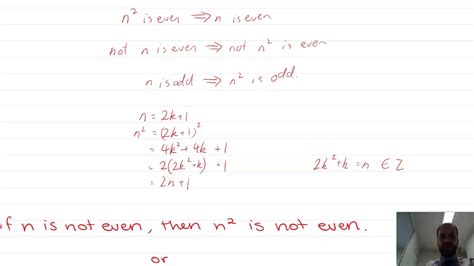 n² is even ⇒ n is even
not n is even ⇒ not n² is even
n is odd ⇒ n² is odd.
n = 2k+1
n² = (2k+1)²
= 4k²+4k +1
= 2(2k²+k) +1 2k²+k = n ∈ Z
= 2n+1
f n is not even, then n² is not even.
or